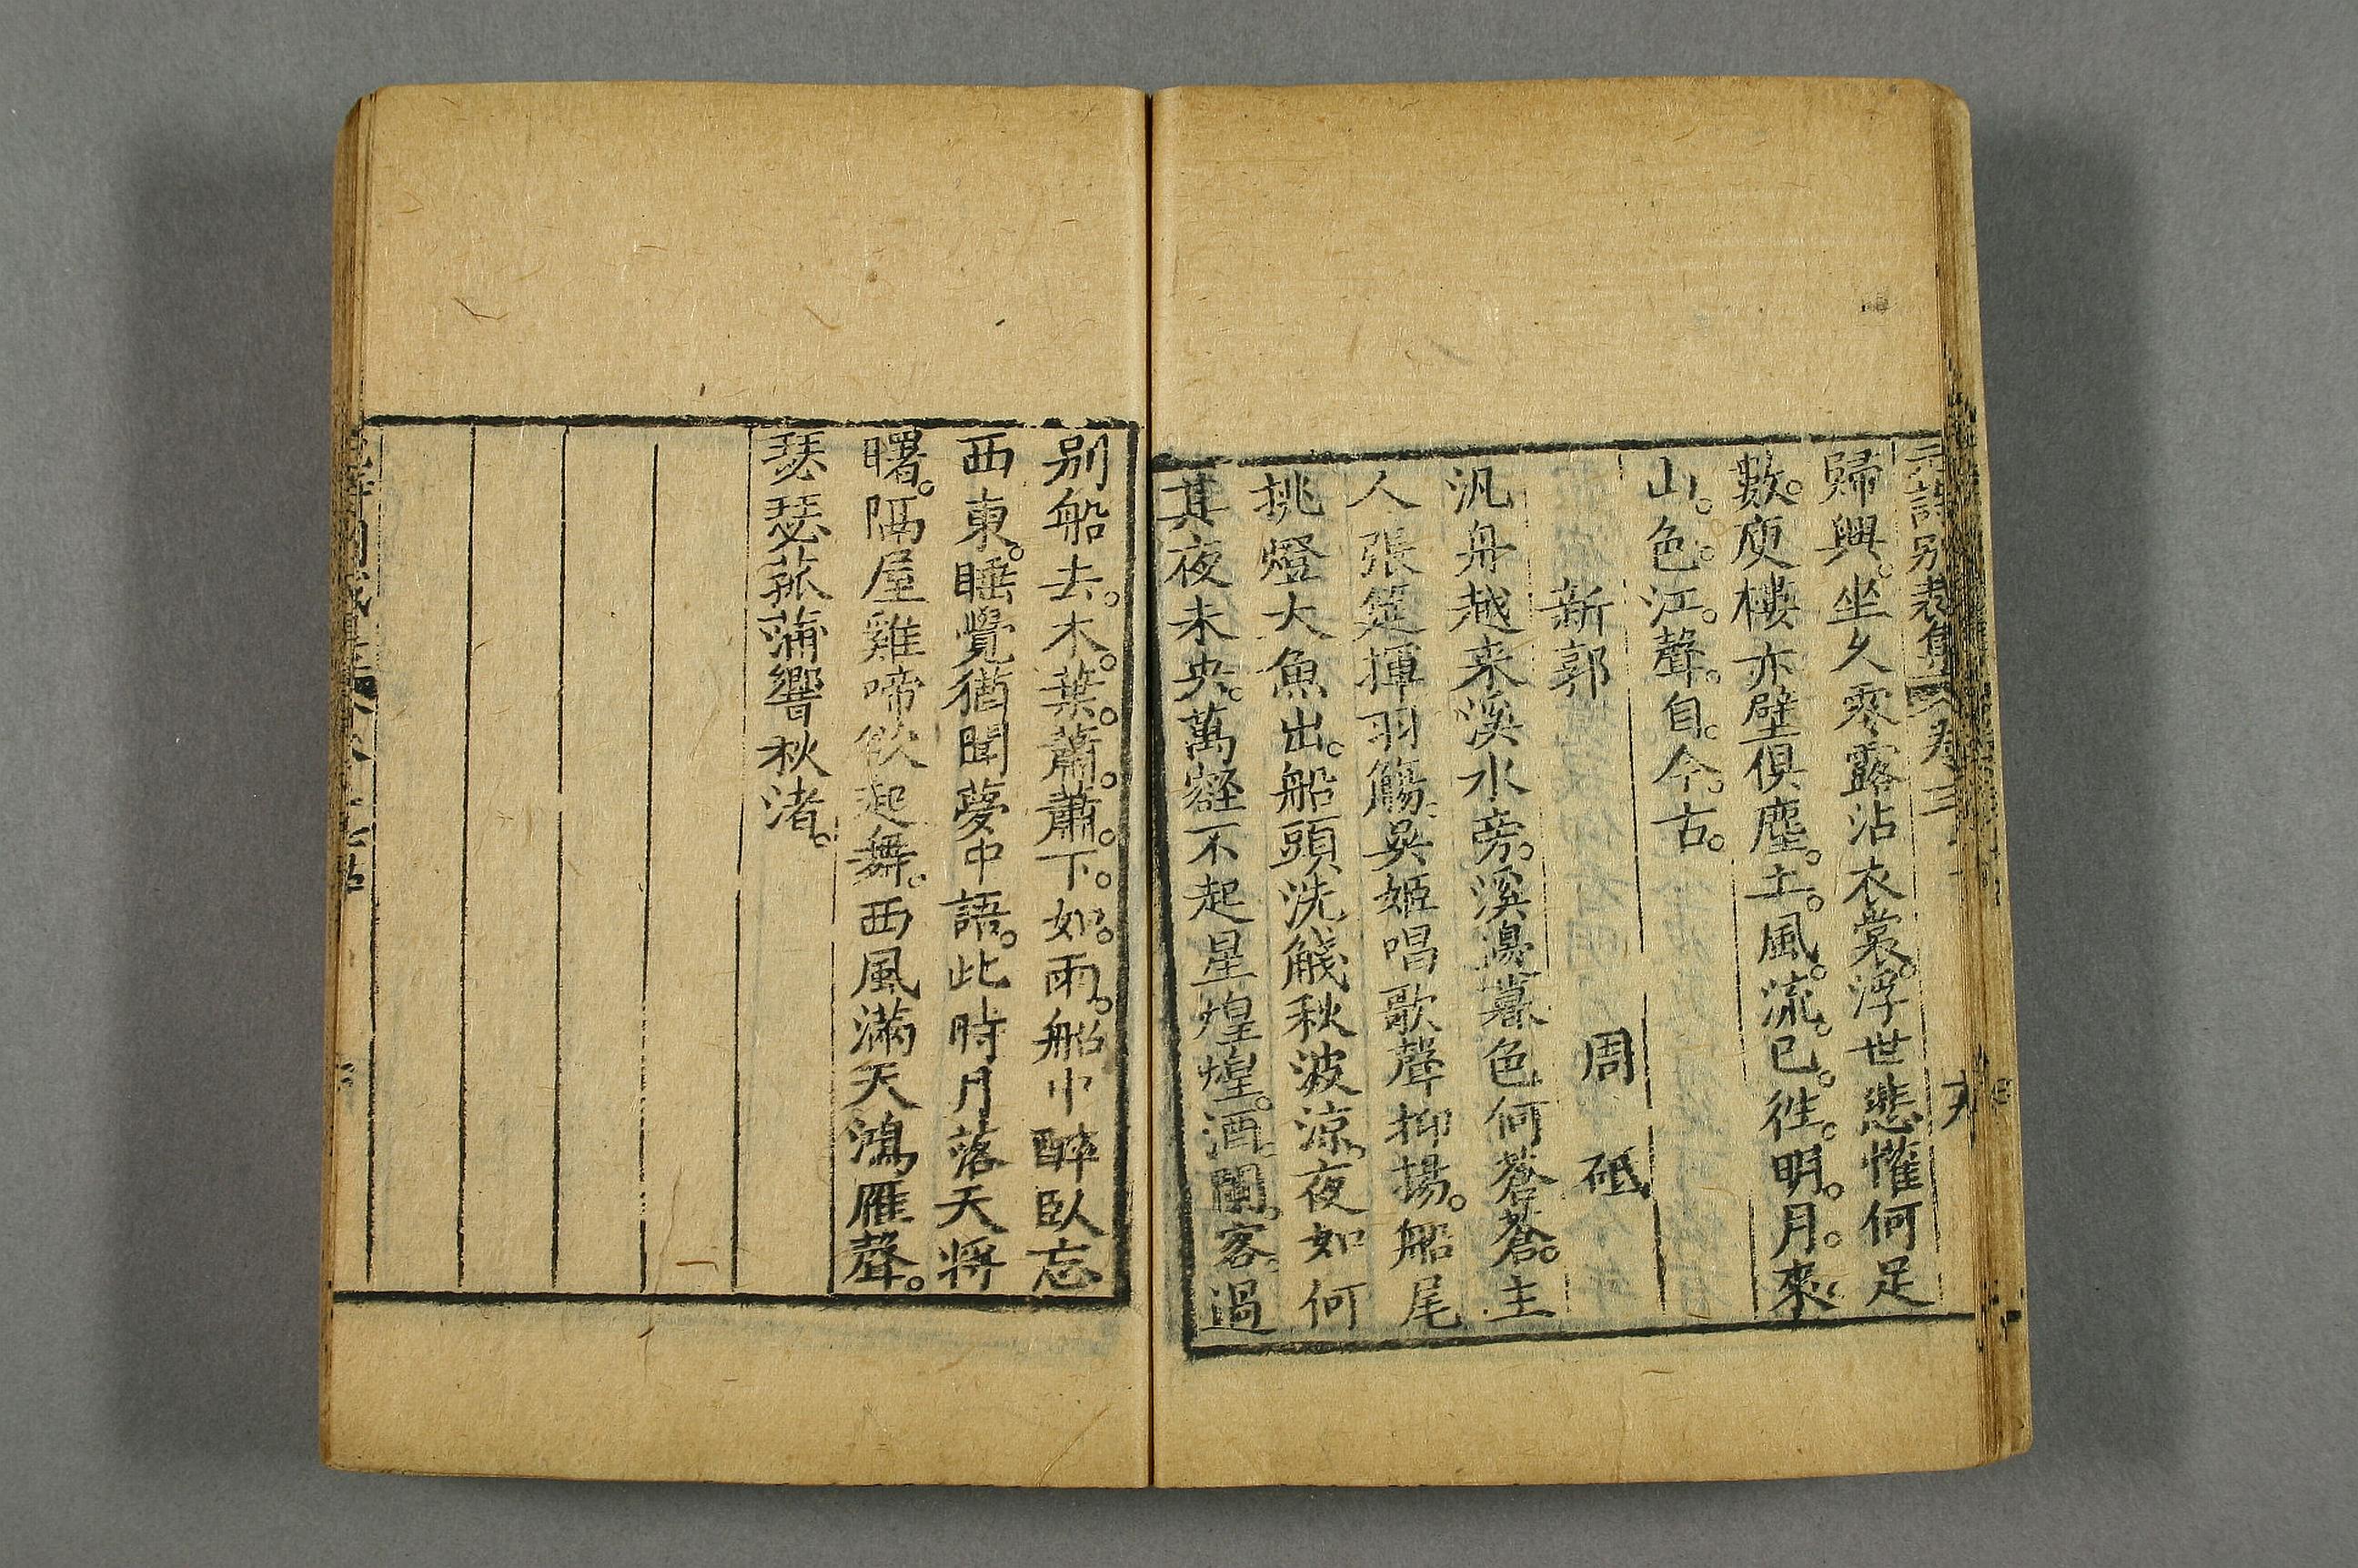 元詩別裁集 卷三
歸興。坐久零露沾衣裳。浮世悲懽何足
數。庾樓赤壁俱塵。土。風。流。已。往。明。月。來。
山。色。江。聲。自。今。古。
新郭 周砥
汎舟越来溪水旁。溪邊暮色何蒼蒼。主
人張筵揮羽觴。吳姬唱歌聲抑揚。船尾
挑燈大魚出。船頭洗觥秋波涼。夜如何
其夜未央。萬壑不起星煌煌。酒。闌。客。過
別船去。木。葉。蕭。蕭。下。如。雨。船中醉臥忘
西東。睡覺猶聞夢中語。此時月落天將
曙。隔屋雞啼欲起舞。西風滿天鴻雁聲。
瑟瑟菰蒲響秋渚。